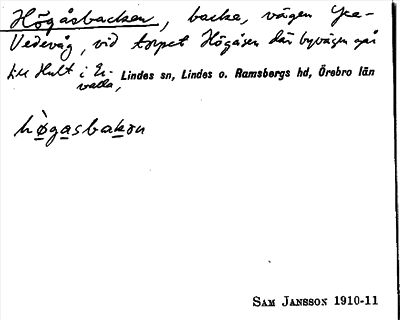 Högåsbacken, backe, vägen Yxe-
Vedevåg, vid torpet Högåsen där byvägen går
till Hult i Er-
valla, Lindes sn, Lindes o. Ramsbergs hd, Örebro län
hø̀gasbakən
SAM JANSSON 1910-11